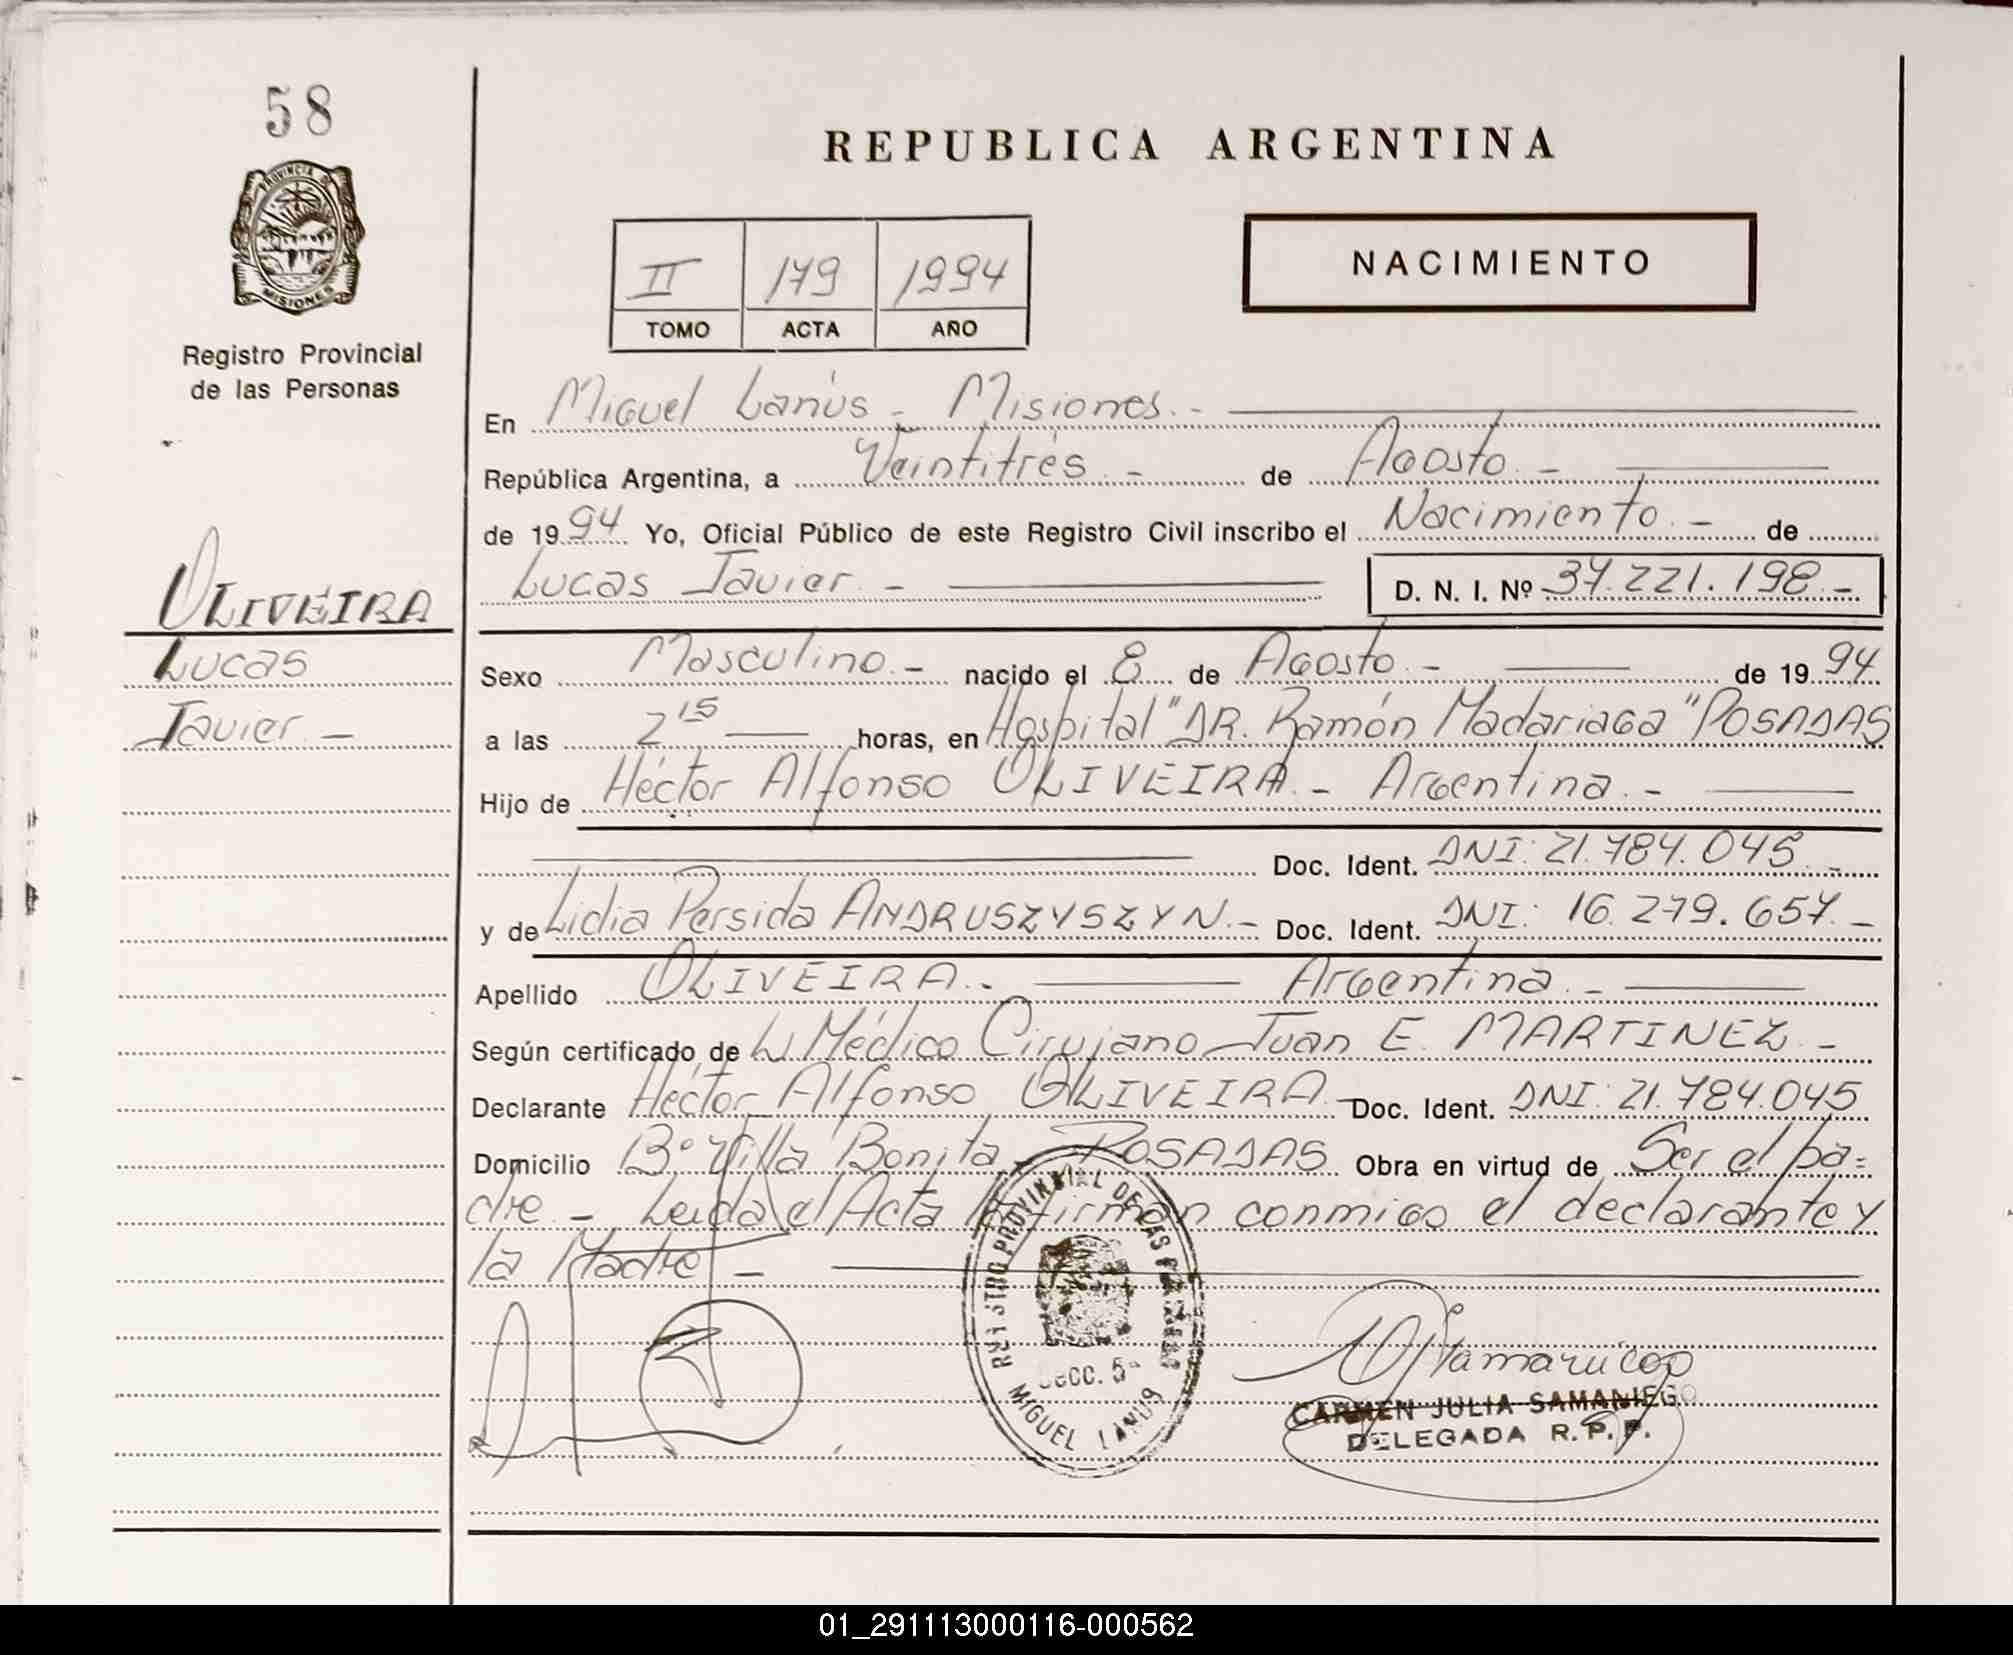 58
PROVINCIA DE
MISIONES
Registro Provincial
de las Personas
REPUBLICA ARGENTINA
II 179 1994
TOMO ACTA AÑO
NACIMIENTO
En Miguel Lanús - Misiones.-
República Argentina, a Veintitrés.- de Agosto.-
de 1994 Yo, Oficial Público de este Registro Civil inscribo el Nacimiento.- de
Lucas Javier.- D. N. I. Nº 37.221.198.-
OLIVEIRA
Lucas
Javier.-
Sexo Masculino.- nacido el 8 de Agosto.- de 1994
a las 2 15 horas, en Hospital "DR. Ramón Madariaga" POSADAS
Hijo de Héctor Alfonso OLIVEIRA.- Argentina.-
Doc. Ident. DNI: 21.784.045.-
y de Lidia Persida ANDRUSZYSZYN.- Doc. Ident. DNI: 16.279.657.-
Apellido OLIVEIRA.- Argentina.-
Según certificado de Médico Cirujano Juan E. MARTINEZ.-
Declarante Héctor Alfonso OLIVEIRA.- Doc. Ident. DNI: 21.784.045
Domicilio Bº Villa Bonita - POSADAS Obra en virtud de Ser el pa=
dre.- Leida el Acta la firman conmigo el declarante y
la Madre.-
REGISTRO PROVINCIAL DE LAS PERSONAS
Secc. 5ª
MIGUEL LANUS
CARMEN JULIA SAMANIEGO
DELEGADA R.P.P.
01_291113000116-000562